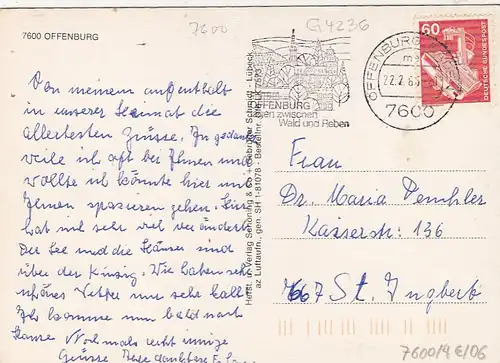 7600
G4236
7600 OFFENBURG
Von meinem Aufenthalt
in unserer Heimat die
allerbesten Grüsse. In Gedanken
weile ich oft bei Ihnen und
wollte ich könnte hier mit
Ihnen spazieren gehen. Hier
hat sich sehr viel verändert
Der See und die Häuser sind
über der Kinzig. Wir haben sehr
schönes Wetter nur sehr kalt
Ich komme nun bald nach
Hause Nochmals recht innige
Grüsse Ihre dankbare
Herst. u. Verlag Schöning & Co + Gebrüder Schmidt - Lübeck
az Luftaufn., gen. SH 1-81078 - Bestellnr.
OFFENBURG
zwischen
Wald und Reben
OFFENBURG
22.2.86
7600
60
DEUTSCHE BUNDESPOST
Frau
Dr. Maria
Kaiserstr. 136
667 St. Ingbert
7600/9E/06